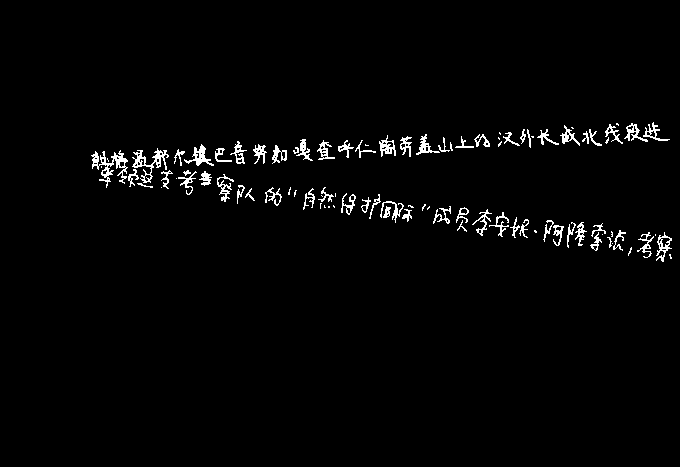 潮格温都尔镇巴音努如嘎查呼仁陶劳盖山上的汉外长城北线段进
率领这支考察队的“自然保护国际”成员李安妮·阿隆索说,考察